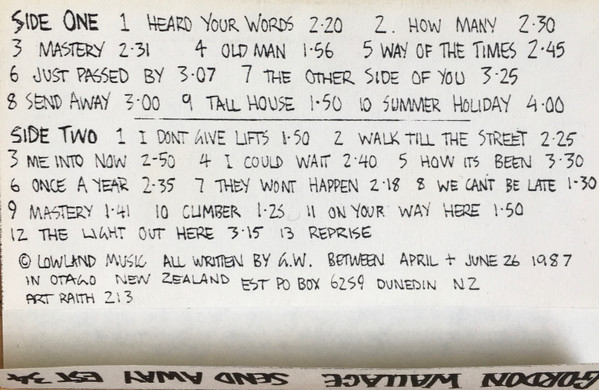 SIDE ONE 1 HEARD YOUR WORDS 2·20 2. HOW MANY 2·30
3 MASTERY 2·31 4 OLD MAN 1·56 5 WAY OF THE TIMES 2·45
6 JUST PASSED BY 3·07 7 THE OTHER SIDE OF YOU 3·25
8 SEND AWAY 3·00 9 TALL HOUSE 1·50 10 SUMMER HOLIDAY 4·00
SIDE TWO 1 I DONT GIVE LIFTS 1·50 2 WALK TILL THE STREET 2·25
3 ME INTO NOW 2-50 4 I COULD WAIT 2·40 5 HOW ITS BEEN 3·30
6 ONCE A YEAR 2·35 7 THEY WONT HAPPEN 2·18 8 WE CAN'T BE LATE 1·30
9 MASTERY 1·41 10 CLIMBER 1·25 11 ON YOUR WAY HERE 1·50
12 THE LIGHT OUT HERE 3·15 13 REPRISE
© LOWLAND MUSIC ALL WRITTEN BY G.W. BETWEEN APRIL + JUNE 26 1987
IN OTAGO NEW ZEALAND EST PO BOX 6259 DUNEDIN NZ
ART RAITH 213
GORDON WALLACE SEND AWAY EST 34